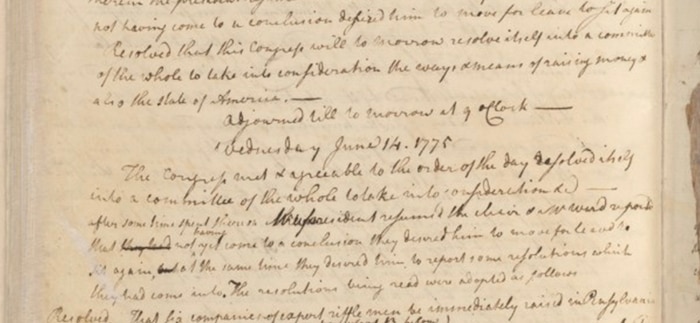 not having come to a conclusion desired him to move for leave to sit again
Resolved that this Congress will to morrow resolve itself into a committee
of the whole to take into consideration the ways & means of raising money &
also the state of America. —
Adjourned till to morrow at 9 oClock —
Wednesday June 14. 1775
The Congress met & agreeable to the order of the day resolved itself
into a committee of the whole to take into consideration &c —
after some time spent thereon the president resumed the chair & Mr Ward reported
that they had not yet having come to a conclusion they desired him to move for leave to
sit again, but at the same time they desired him to report some resolutions which
they had come into. The resolutions being read were adopted as follows
Resolved. That six companies of expert riffle men be immediately raised in Pensylvania